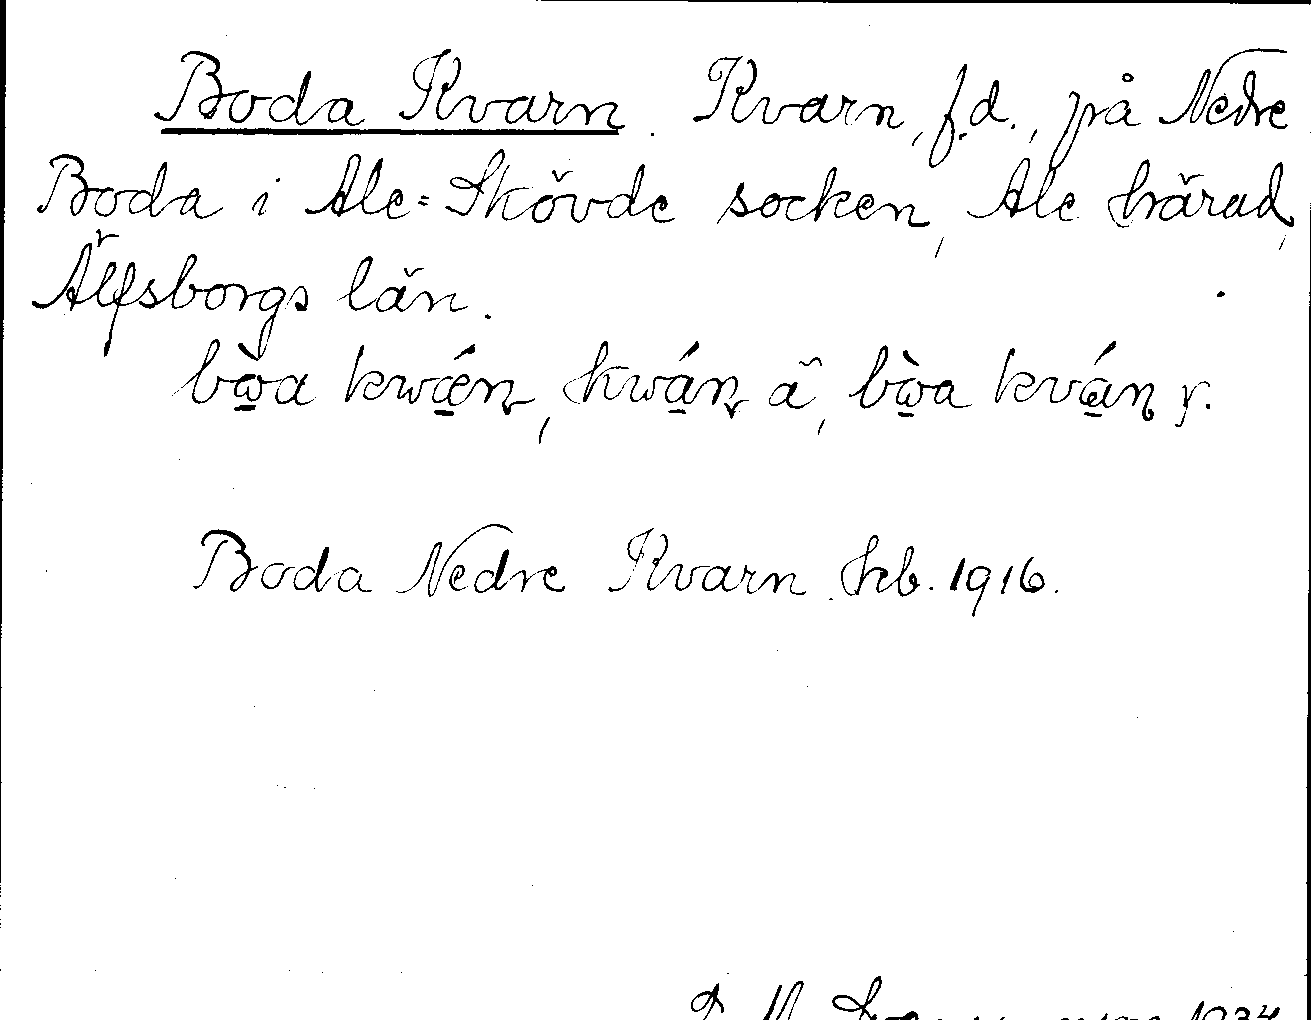 Boda Kvarn. Kvarn, f.d., på Nedre
Boda i Ale=Skövde socken, Ale härad,
Älfsborgs län.
bꞷ̀a kwǽn, kwán ä, bꞷ̀a kván y.
Boda Nedre Kvarn hb. 1916.
1934